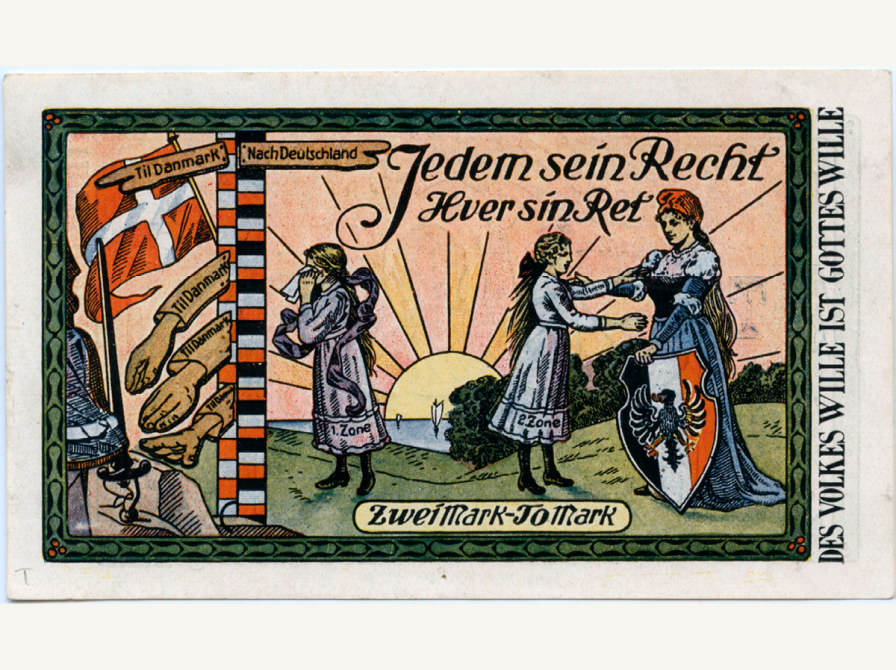 Til Danmark
Nach Deutschland
Jedem sein Recht
Hver sin Ret
Til Danmark
Til Danmark
Til Danmark
1. Zone
2. Zone
Zwei Mark-To Mark
DES VOLKES WILLE IST GOTTES WILLE
T